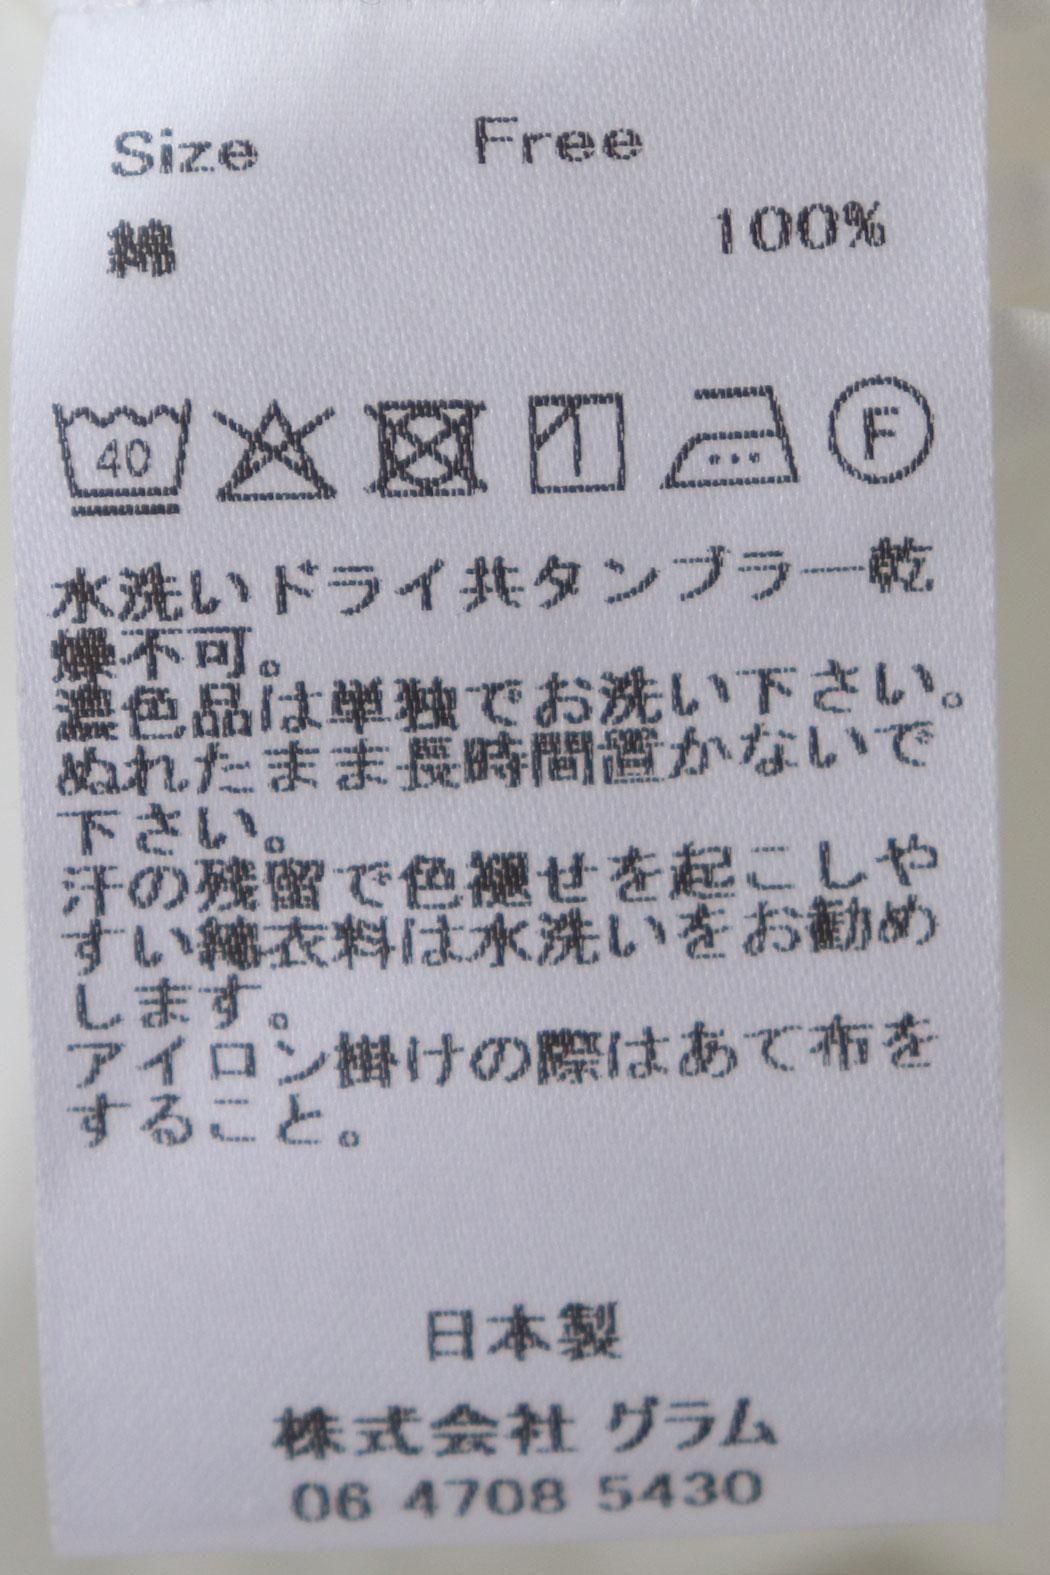 Size Free
綿 100%
40 F
水洗いドライ共タンブラー乾
燥不可。
濃色品は単独でお洗い下さい。
ぬれたまま長時間置かないで
下さい。
汗の残留で色褪せを起こしや
すい為衣料は水洗いをお勧め
します。
アイロン掛けの際はあて布を
すること。
日本製
株式会社 グラム
06 4708 5430